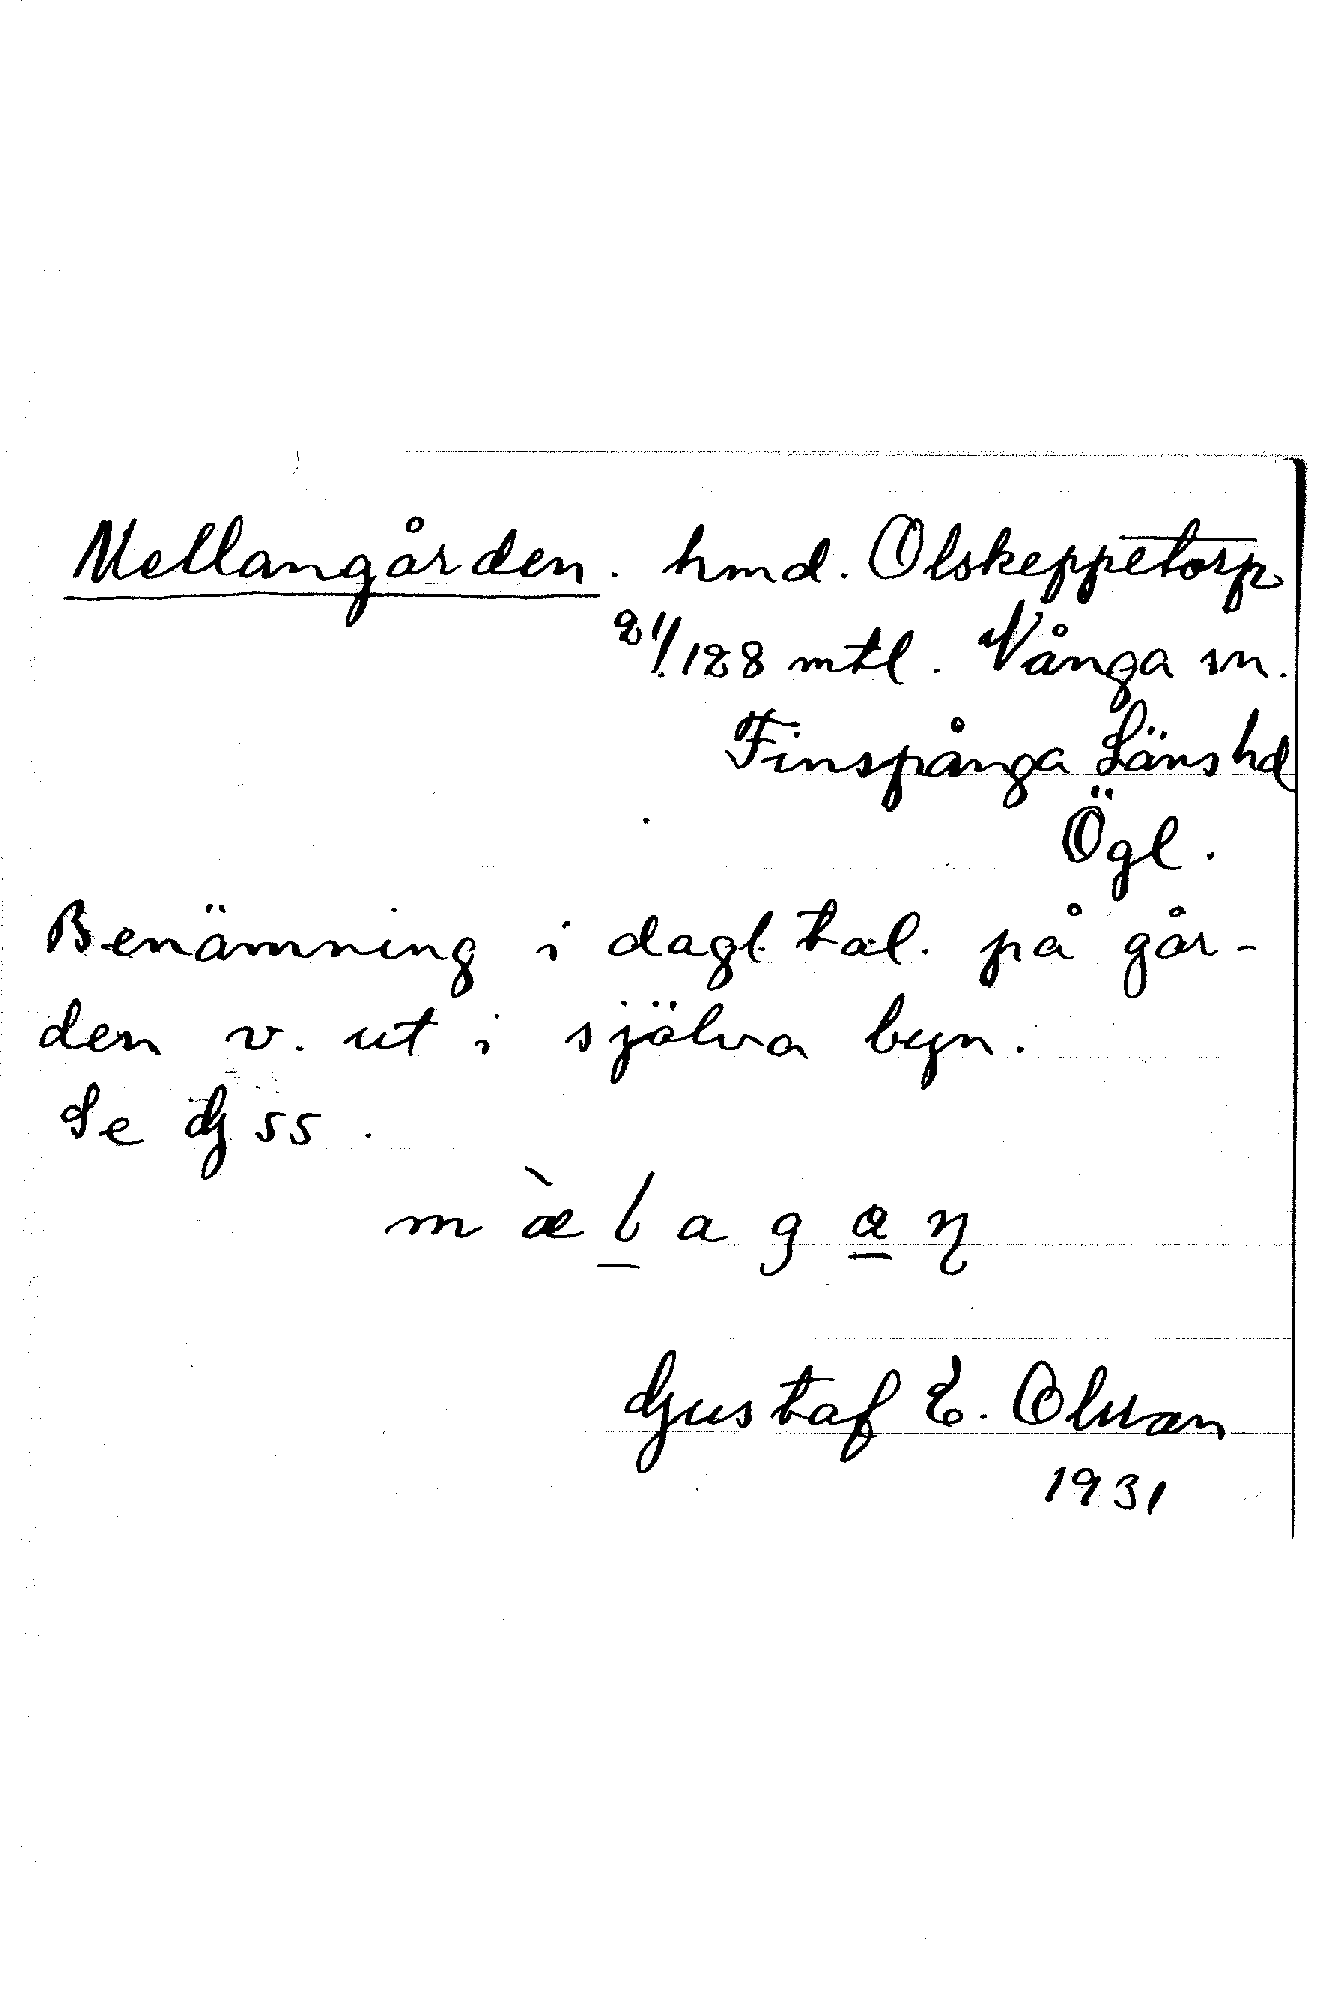 Mellangården. hmd. Olskeppetorp
21/128 mtl. Vånga sn.
Finspånga Länshd
Ögl.
Benämning i dagl. tal. på går-
den v. ut i själva byn.
Se G 55.
m æ̀ l a g a̲ n
Gustaf E. Olsson
1931